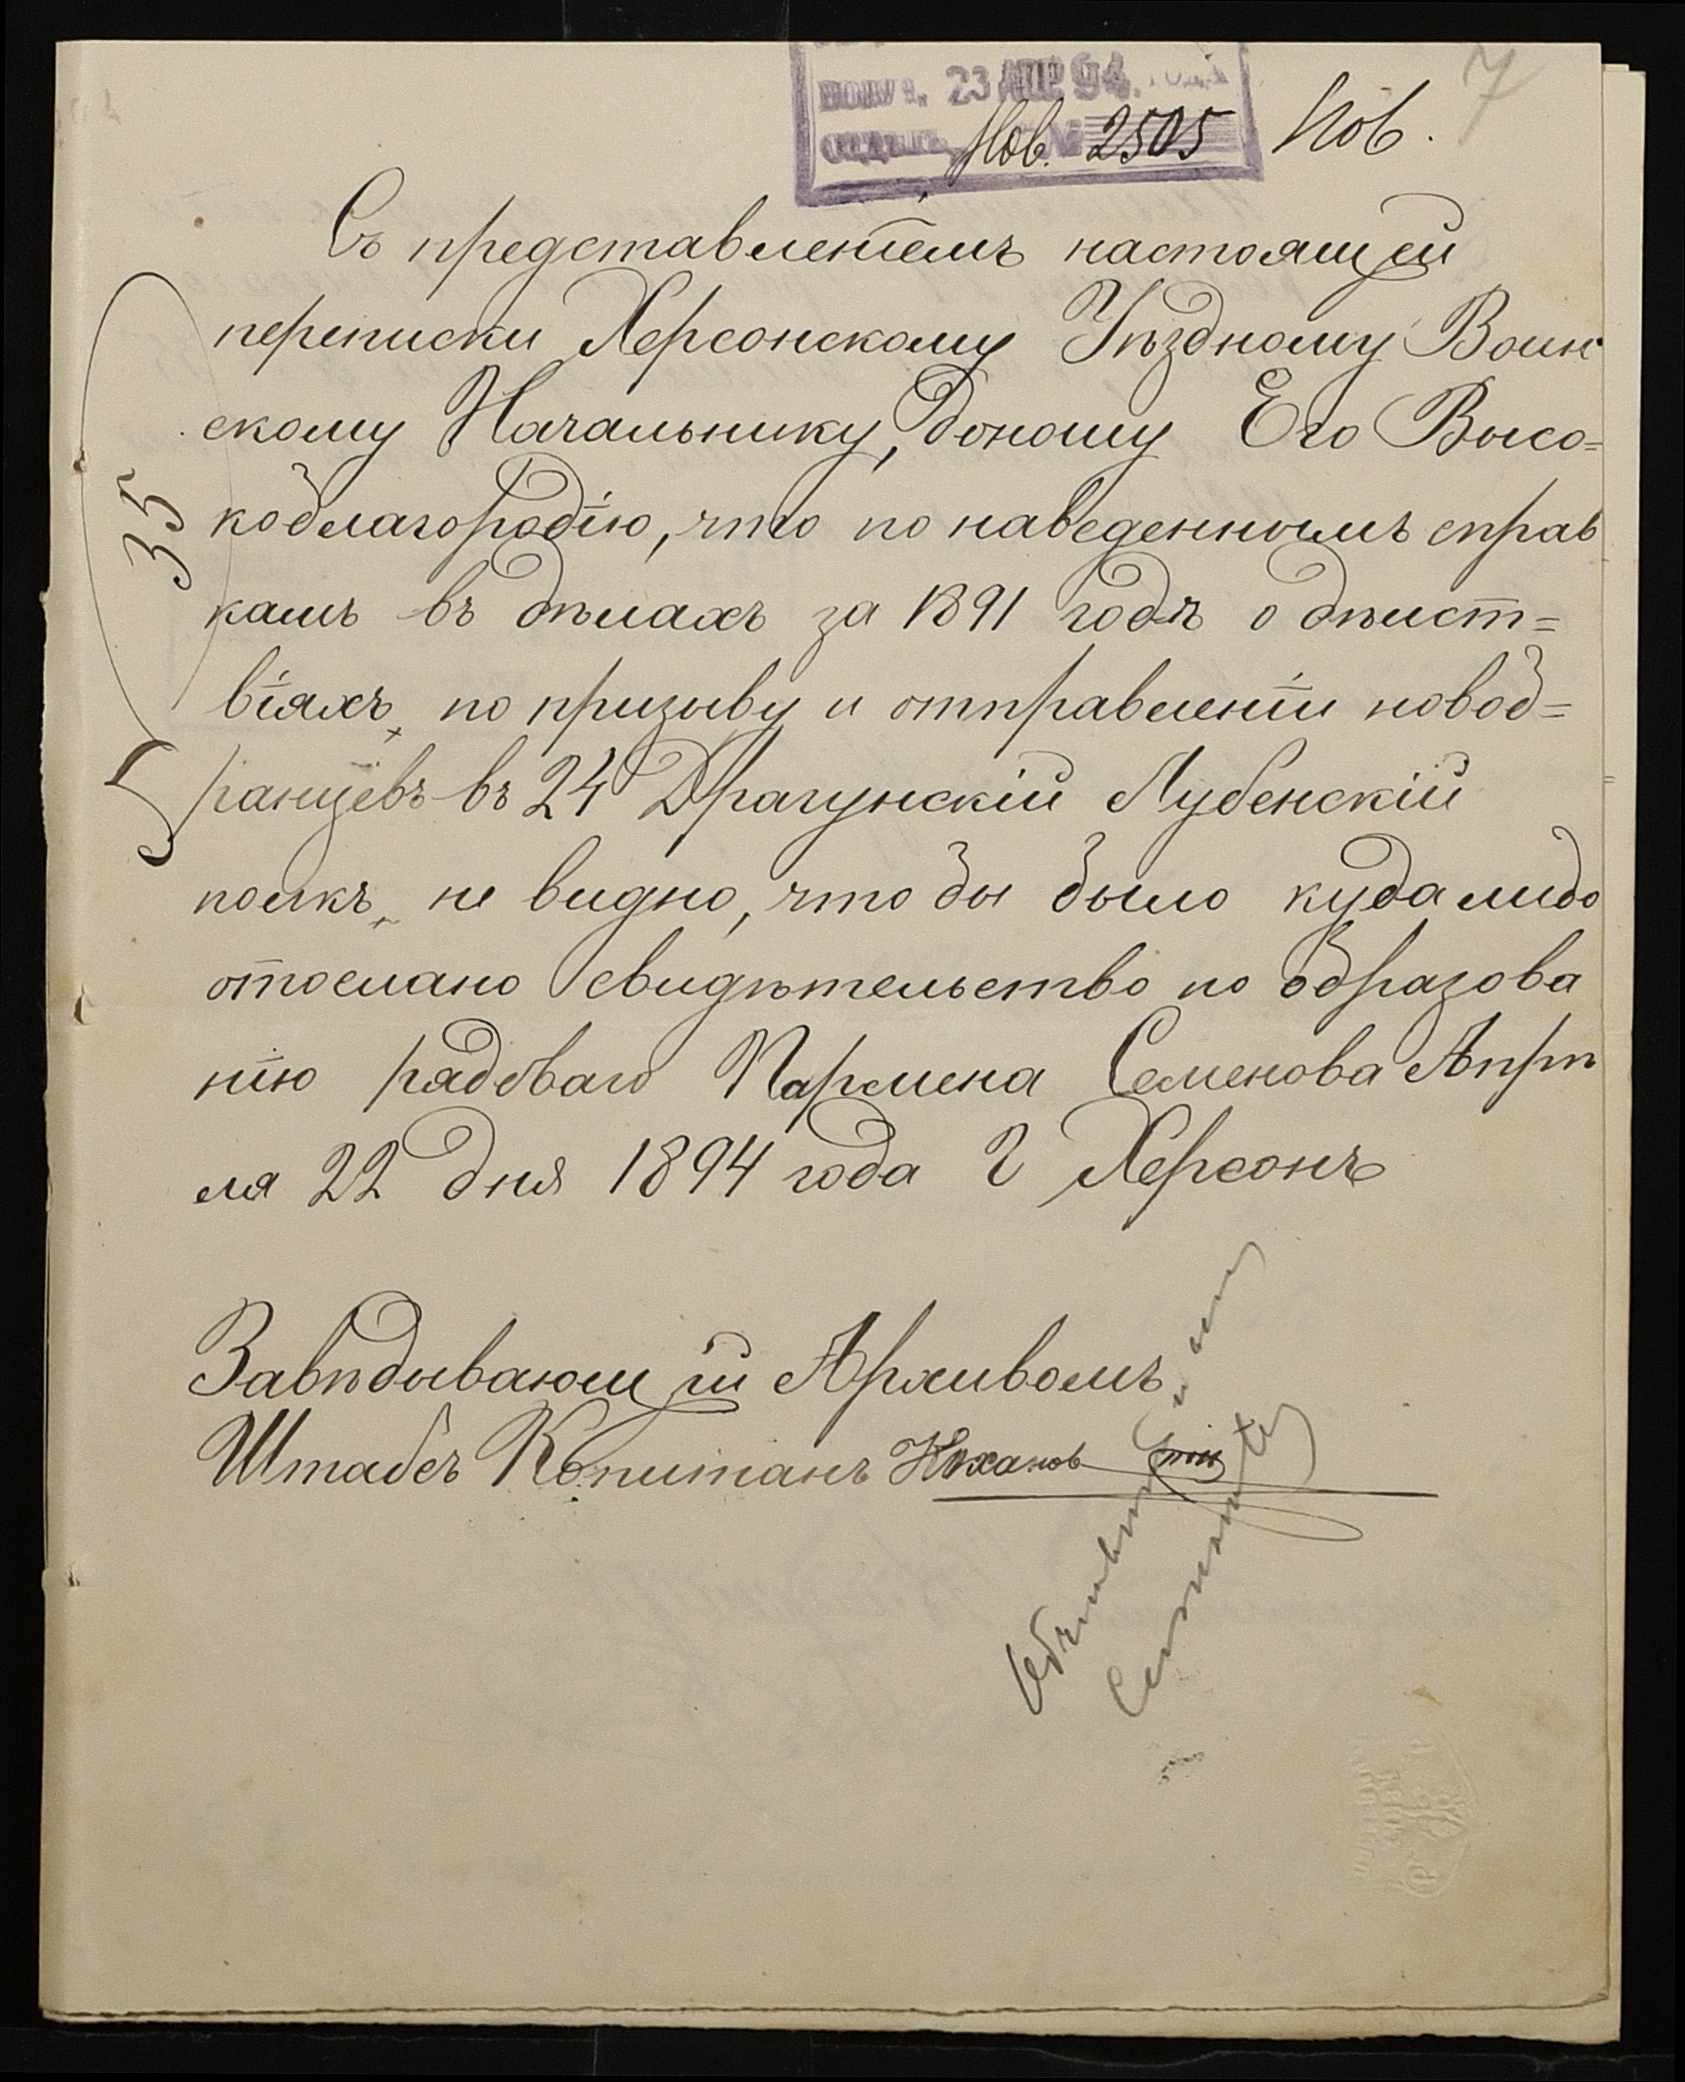 7
23 АПР 94.
Нов. № 2505 Нов.
Съ представленіемъ настоящей
переписки Херсонскому Уѣздному Воин
скому Начальнику, доношу Его Высо=
коблагородію, что по наведеннымъ справ
камъ въ дѣлахъ за 1891 годъ о дѣйст=
віяхъ, по призыву и отправленіи новоб=
ранцевъ въ 24 Драгунскій Лубенскій
полкъ, не видно, что бы было куда либо
отослано свидѣтельство по образова
нію рядоваго Пармена Семенова Апрѣ
ля 22 дня 1894 года Г Херсонъ
35
Завѣдывающій Архивомъ
Штабсъ Капитанъ Кохановскій